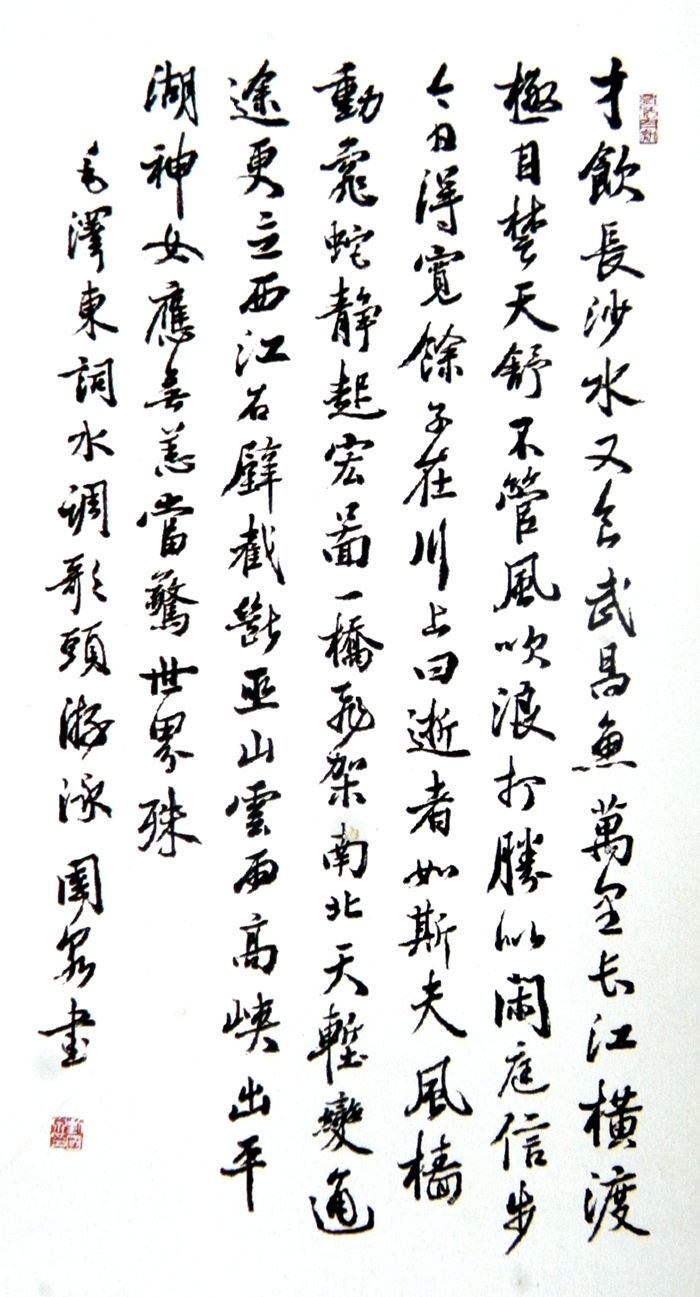 才飲長沙水又食武昌魚萬里长江橫渡
極目楚天舒不管風吹浪打勝似閑庭信步
今日得寬餘子在川上曰逝者如斯夫風檣
動龜蛇静起宏圖一橋飛架南北天塹變通
途更立西江石壁截斷巫山雲雨高峽出平
湖神女應無恙當驚世界殊
毛澤東詞水調歌頭游泳 書